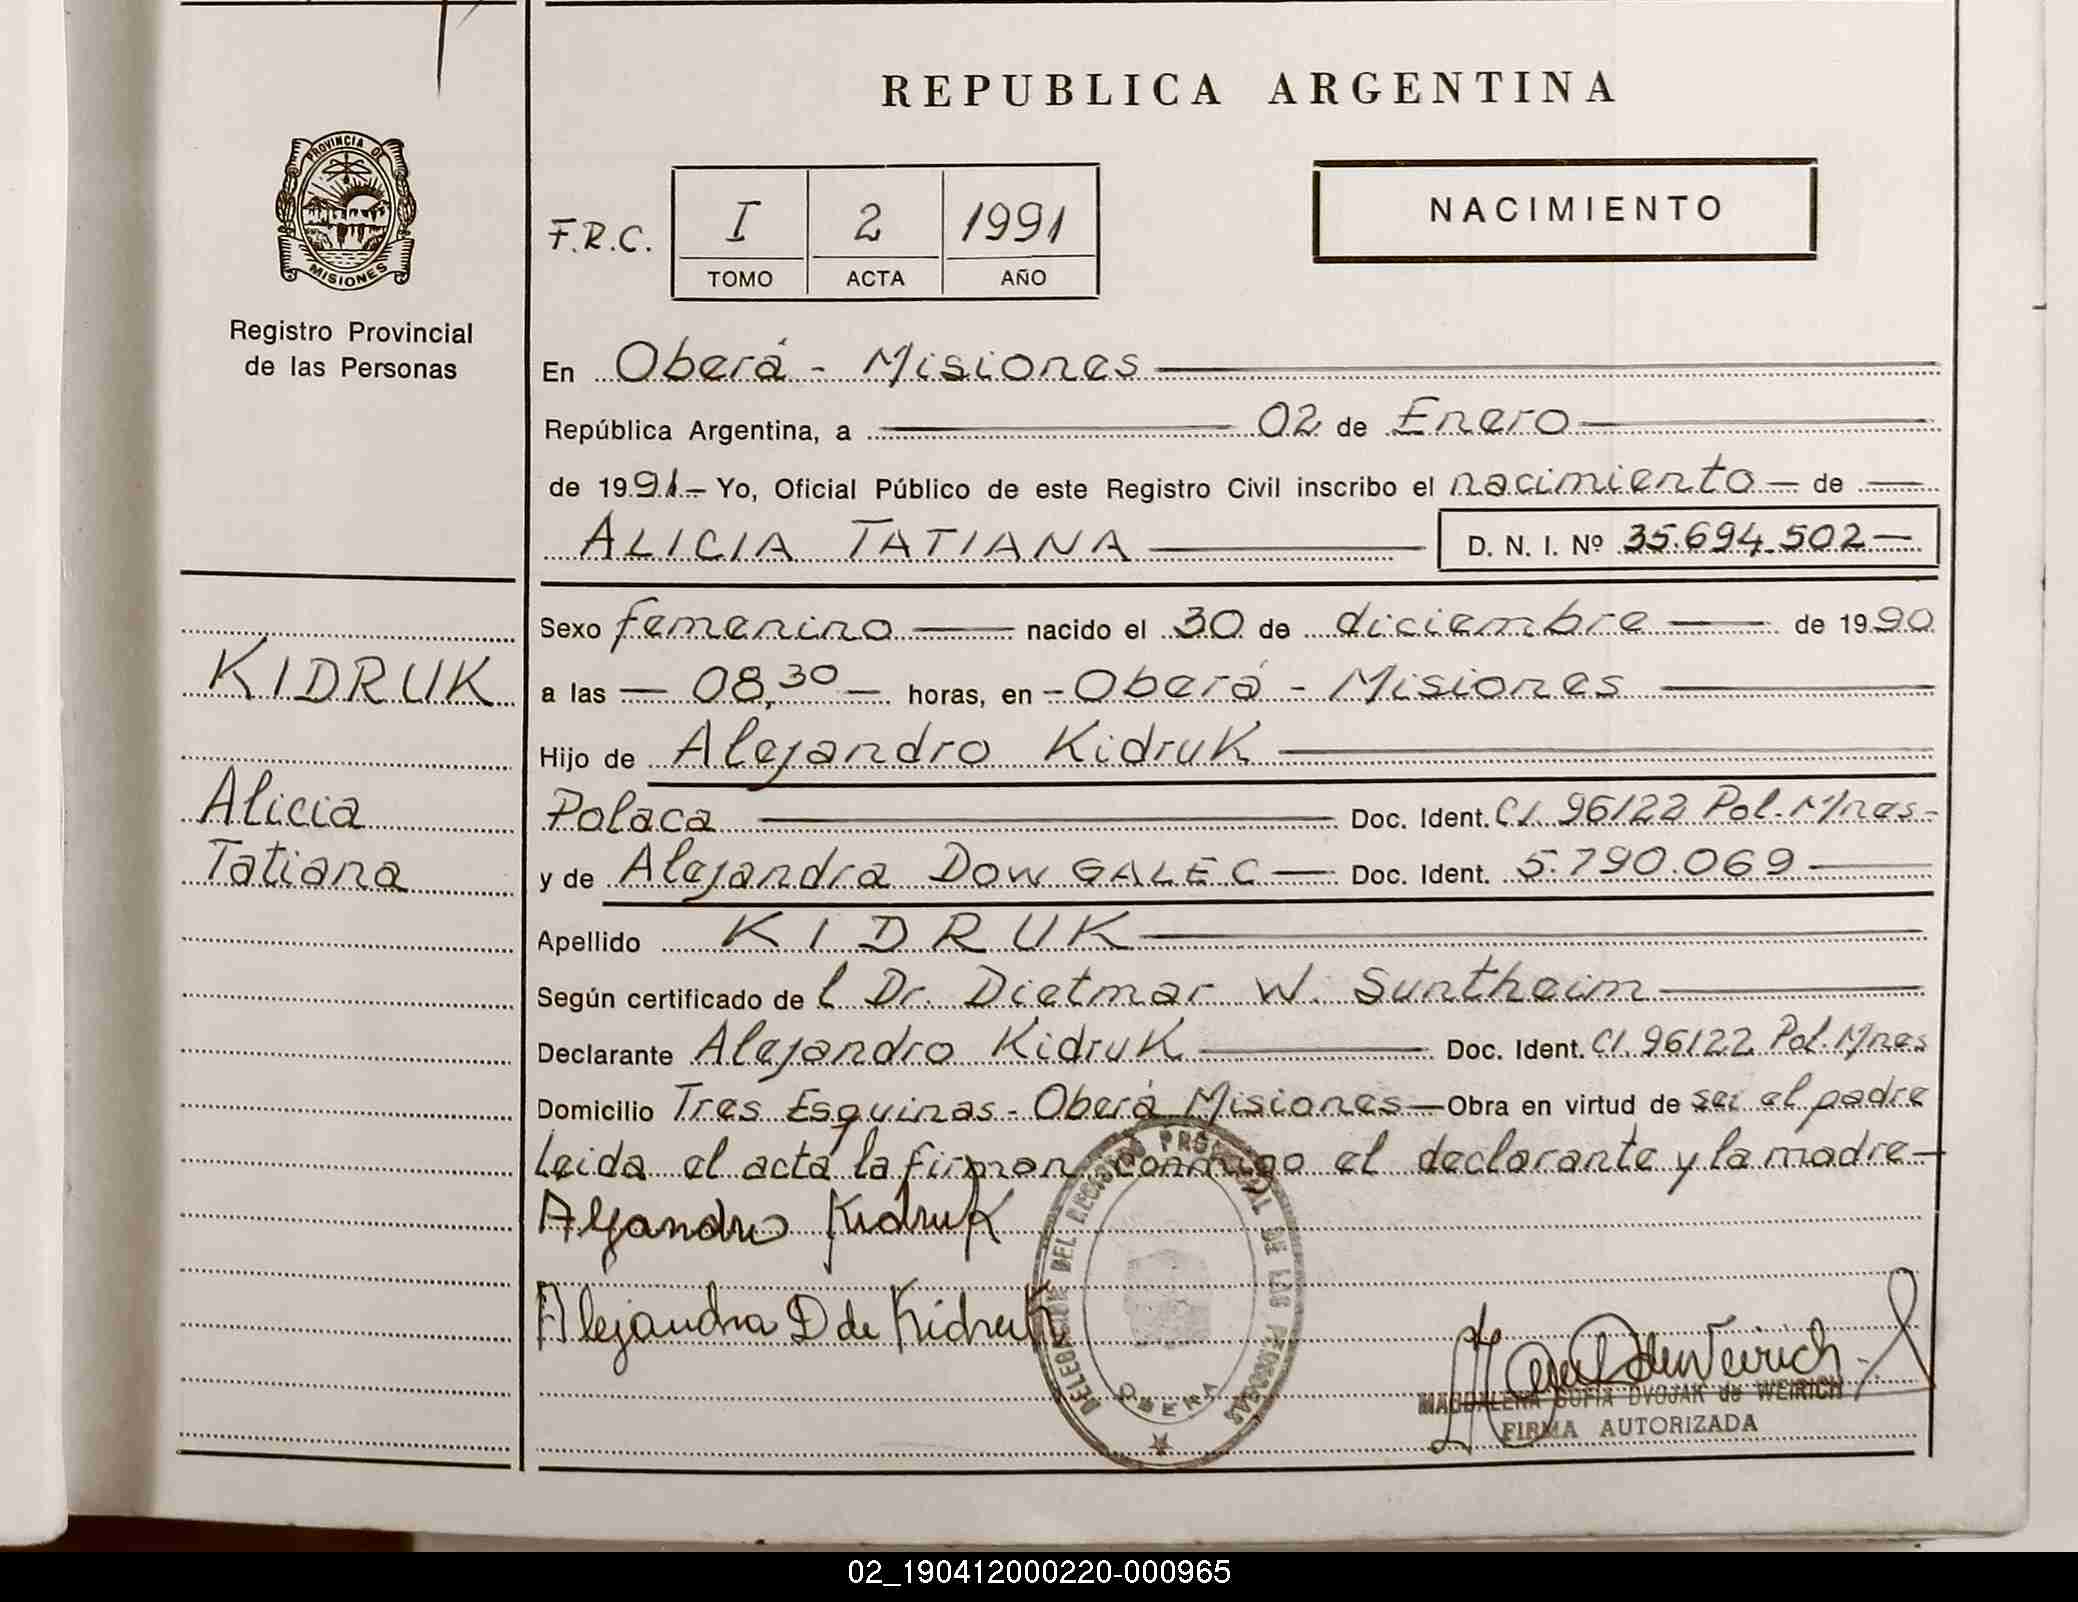 REPUBLICA ARGENTINA
PROVINCIA DE
MISIONES
Registro Provincial
de las Personas
F.R.C.
I 2 1991
TOMO ACTA AÑO
NACIMIENTO
En Oberá - Misiones
República Argentina, a 02 de Enero
de 1991.- Yo, Oficial Público de este Registro Civil inscribo el nacimiento - de
ALICIA TATIANA D. N. I. Nº 35.694.502-
Sexo femenino nacido el 30 de diciembre de 1990
a las - 08,30 - horas, en - Oberá - Misiones
Hijo de Alejandro Kidruk
Polaca Doc. Ident. C.I. 96122 Pol. Mnes-
y de Alejandra DOWGALEC - Doc. Ident. 5.790.069
Apellido KIDRUK
Según certificado de l Dr. Dietmar W. Suntheim
Declarante Alejandro Kidruk Doc. Ident. C.I. 96122 Pol. Mnes
Domicilio Tres Esquinas - Oberá Misiones - Obra en virtud de ser el padre
Leida el acta la firman conmigo el declarante y la madre -
Alejandro Kidruk
Alejandra D de Kidruk
KIDRUK
Alicia
Tatiana
DELEGACION DEL REGISTRO PROVINCIAL DE LAS PERSONAS
OBERA
MAGDALENA SOFIA DVOJAK de WEIRICH
FIRMA AUTORIZADA
02_190412000220-000965